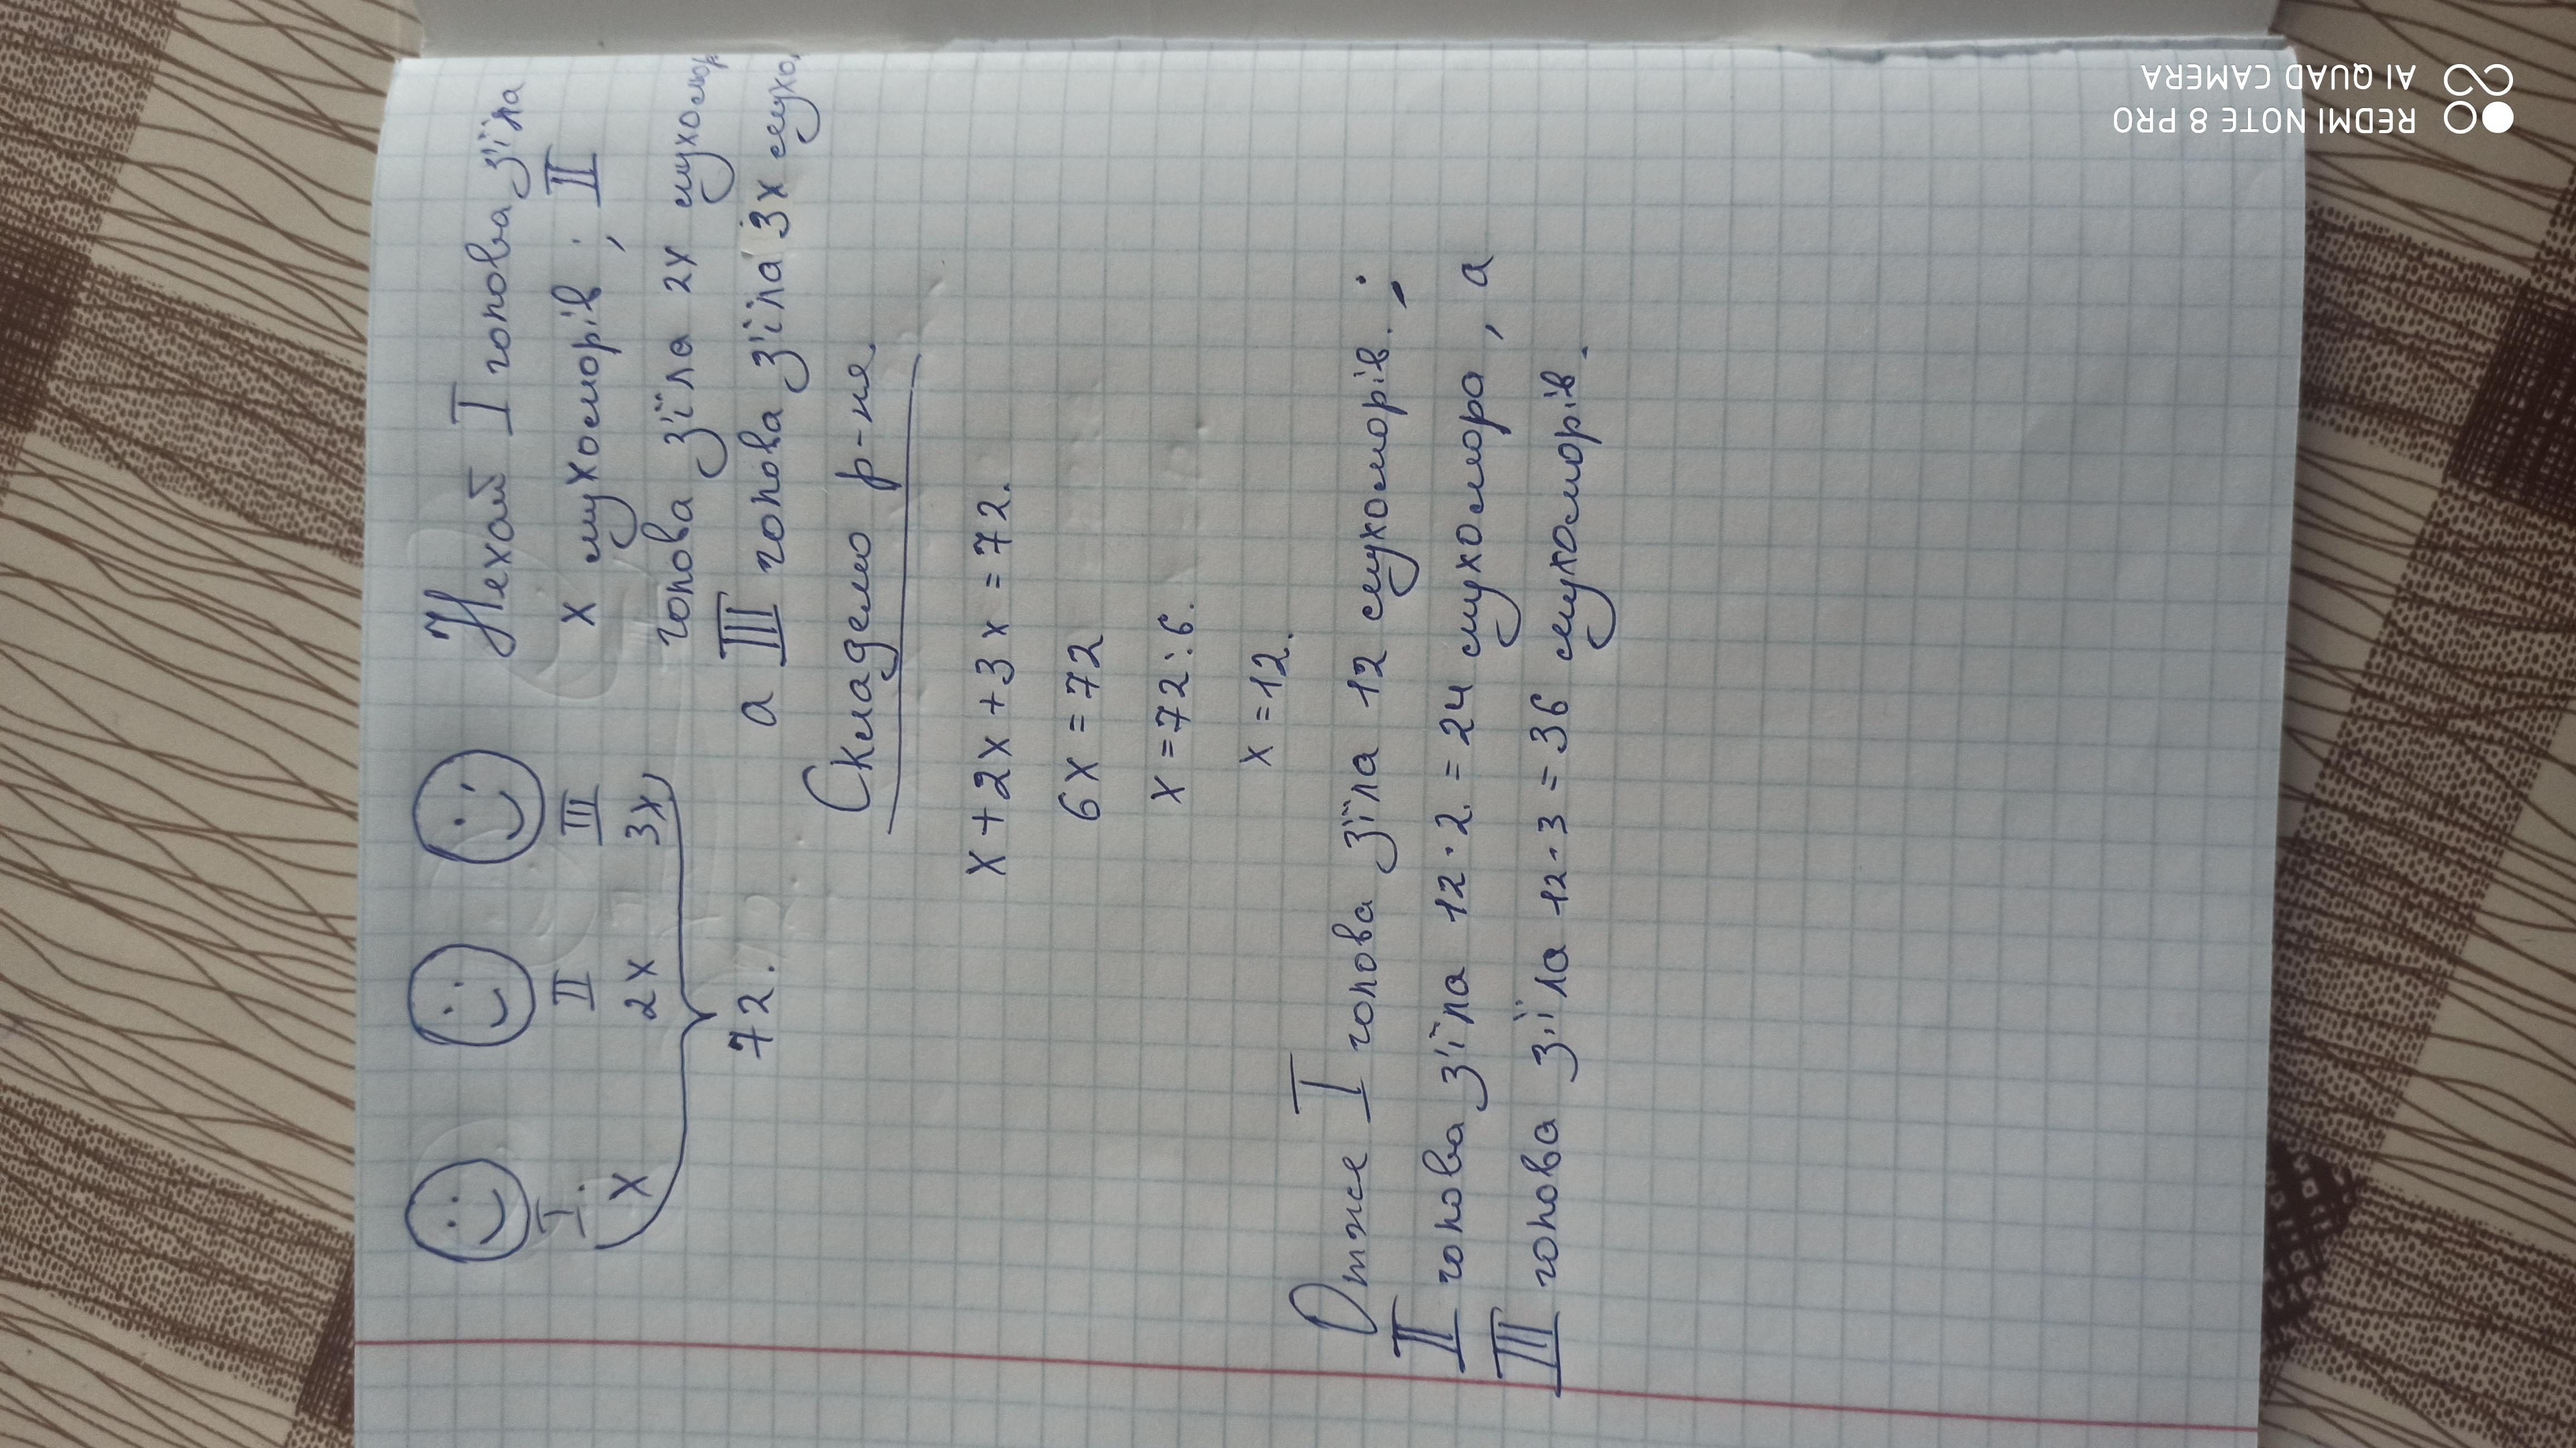 I. II III
x 2x 3x
72.
Нехай I голова з'їла
x мухоморів ; II
голова з'їла 2x мухомор
а III голова з'їла 3x мухо
Складемо р-ня.
x + 2x + 3x = 72.
6x = 72
x = 72 : 6.
x = 12.
Отже I голова з'їла 12 мухоморів. ;
II голова з'їла 12 · 2 = 24 мухомора , а
III голова з'їла 12 · 3 = 36 мухоморів.
REDMI NOTE 8 PRO
AI QUAD CAMERA